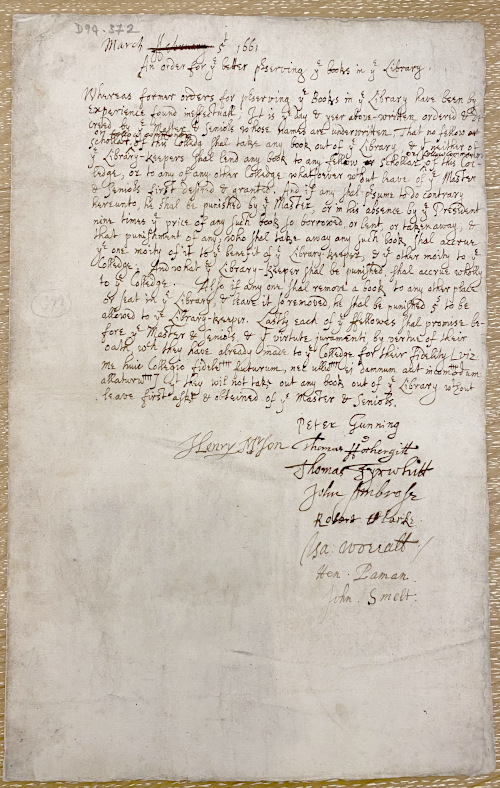 D94.372
March 5t 1661
An order for ye better p̱serving ye books in ye Library
Whereas former orders for p̱serving ye Books in ye Library have been by
experience found ineffectuall. It is ye day & year above-written, ordered & de
creed by ye Master & Seniors whose names are underwritten, That no fellow or
scholar of this Colledg shal take any book out of ye Library, & yt neither of
ye Library-keepers shal lend any book to any fellow or scholar of this Col-
ledge, or to any of any other Colledge whatsoever wthout leave of ye Master
& Seniors first desired & granted. And if any shal p̱sume to do contrary
hereunto, he shal be punished by ye Master, or in his absence by ye President
nine times ye price of any such book so borrowed, or lent, or taken away, &
that punishment of any, who shal take away any such book, shal accrue
ye one moity of it to ye benefit of ye Library-keeper, & ye other moity to ye
Colledge. And what ye Library-keeper shal be punished, shal accrue wholly
to ye Colledge. Also if any one shal remove a book to any other place
or seat in ye Library & leave it so removed, he shal be punished to be
allowed to ye Library-keeper. Lastly each of ye fellowes shal promise be-
fore ye Master & Seniors, & yt virtute juramenti, by vertue of their
oath wch they have already made to ye Colledge for their Fidelity (viz
Me huic Collegio fidelem futurum, nec ullum ei damnum aut incommodum
allaturum) yt they wil not take out any book out of ye Library wthout
leave first askt & obtained of ye Master & Seniors.
Peter Gunning
Henry Thomas Fothergill
Thomas Tyrwhitt
John Ambrose
Robert Clarke.
Isa: Worrall
Hen. Paman.
John Smelt.